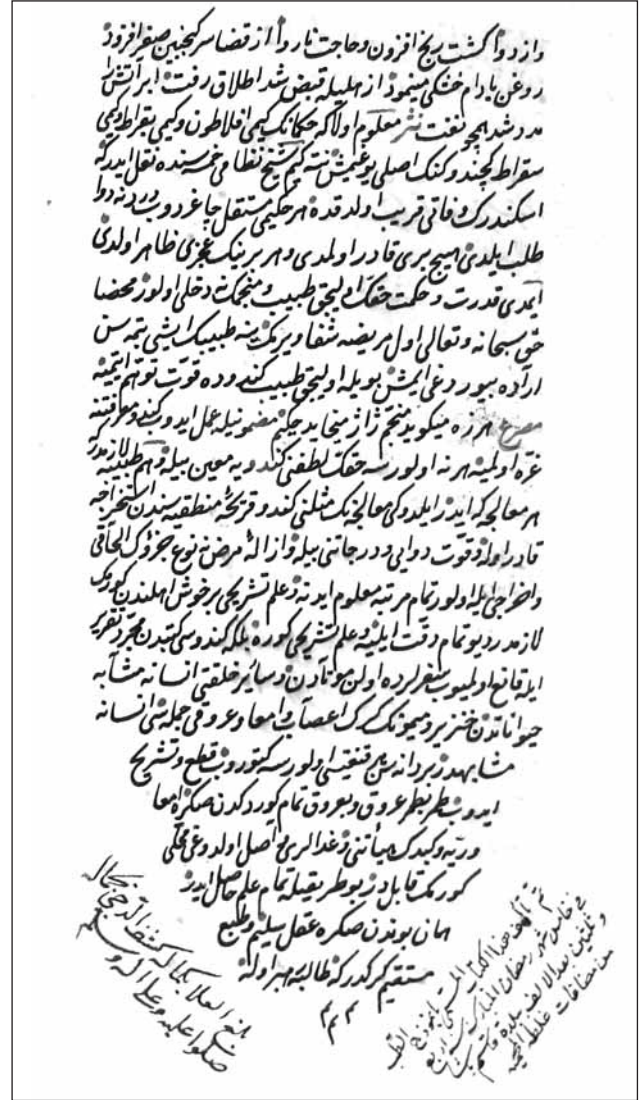 واز دوا کشت رنج افزون وحاجت ناروا از قضا سرکنجبین صفرا فزود
روغن بادام خشکی مینمود از هلیله قبض شد اطلاق رفت آب آتش را
مدد شد همچو نفت نثر معلوم اولا که حکمانک کیمی افلاطون وکیمی بقراط وکیمی
سقراط کچندوکنک اصلی یوغیمش نته کیم شیخ نظامی خمسه سنده نقل ایدر که
اسکندرک وفاتی قریب اولدقده هر حکیمی مستقل چاغردوب دردنه دوا
طلب ایلدی هیچ بری قادر اولمدی وهر برینک عجزی ظاهر اولدی
ایمدی قدرت وحکمت حقک اولیجق طبیب ومنجمک نه دخلی اولور محضا
حق سبحانه وتعالی اول مریضه شفا ویرمک ینه طبیبک ایشی بتمه سن
اراده بیوردوغی ایمش بویله اولیجق طبیب کندوده قوت توهم ایتمیه
مصرع هرزه میکوید منجم ژاژ میخاید حکیم مضمونیله عمل ایدوب کندو معرفتنه
غره اولمیه هر نه اولورسه حقک لطفنی کندویه معین بیله وهم طبیبه لازمدرکه
هر معالجه که ایدر ایلدوکی معالجه نک مثلنی کندو قریحۀ منطقیه سندن استخراجه
قادر اوله وقوت دوایی ودرجاتنی بیله وازالۀ مرض نه نوع جزؤک الحاقی
واخراجی ایله اولور تمام مرتبه معلوم ایدنه وعلم تشریحی بر خوش اهلندن کورمک
لازمدر دیو تمام دقت ایلیه وعلم تشریحی کوره بلکه کندوسی کتبدن مجرد تقریر
ایله قانع اولمیوب سفرلرده اولن موتادن وسائر خلقتی انسانه مشابه
حیواناتدن خنزیر ومیمونک کرک اعصاب وامعا وعروقی جمله سی انسانه
مشابهدر بر دانه سن قنغیسی اولورسه کتوروب قطع وتشریح
ایدوب طمر بطمر عروق وبعروق تمام کوردکدن صکره امعا
وریه وکبدک هیأتنی وغدالری حاصل اولدوغی محلی
کورمک قابلدر بو طریقیله تمام علم حاصل ایدر
همان بوندن صکره عقل سلیم وطبع
مستقیم کرکدر که طالبنه میسر اوله
م م م
تم تألیف هذا الکتاب المسمی بانموذج الطب
فی خامس شهر رمضان المبارک سنه اربع
وثلثین بعد الالف ببلدة قاسم پاشا
من مضافات غلطه المحمیه
بلغ العلا بکماله کشف الدجی بجماله
صلوا علیه وعلی آله وسلم